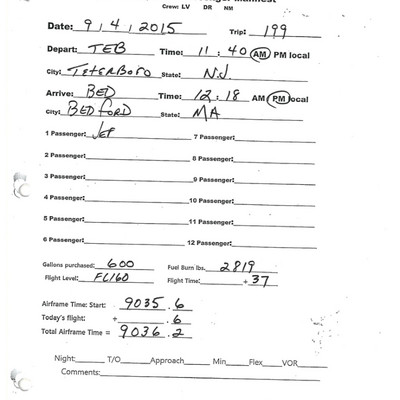 Crew: LV DR NM
Date: 9 / 4 / 2015 Trip: 199
Depart: TEB Time: 11 : 40 AM PM local
City: Teterboro State: NJ
Arrive: BED Time: 12 : 18 AM PM local
City: BEDFORD State: MA
1 Passenger: 7 Passenger:
2 Passenger: 8 Passenger:
3 Passenger: 9 Passenger:
4 Passenger: 10 Passenger:
5 Passenger: 11 Passenger:
6 Passenger: 12 Passenger:
Gallons purchased: 600 Fuel Burn lbs. 2819
Flight Level: FL160 Flight Time: + 37
Airframe Time: Start: 9035 .6
Today's flight: + .6
Total Airframe Time = 9036 .2
Night: T/O Approach Min Flex VOR
Comments: